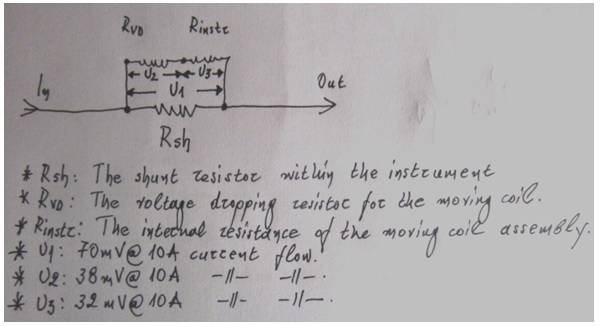 RVD Rinstr
U2 U3
In U1 Out
Rsh
* Rsh: The shunt resistor within the instrument
* RVD: The voltage dropping resistor for the moving coil.
* Rinstr: The internal resistance of the moving coil assembly.
* U1: 70mV@ 10A current flow.
* U2: 38mV@ 10A -//- -//-.
* U3: 32mV@ 10A -//- -//-.